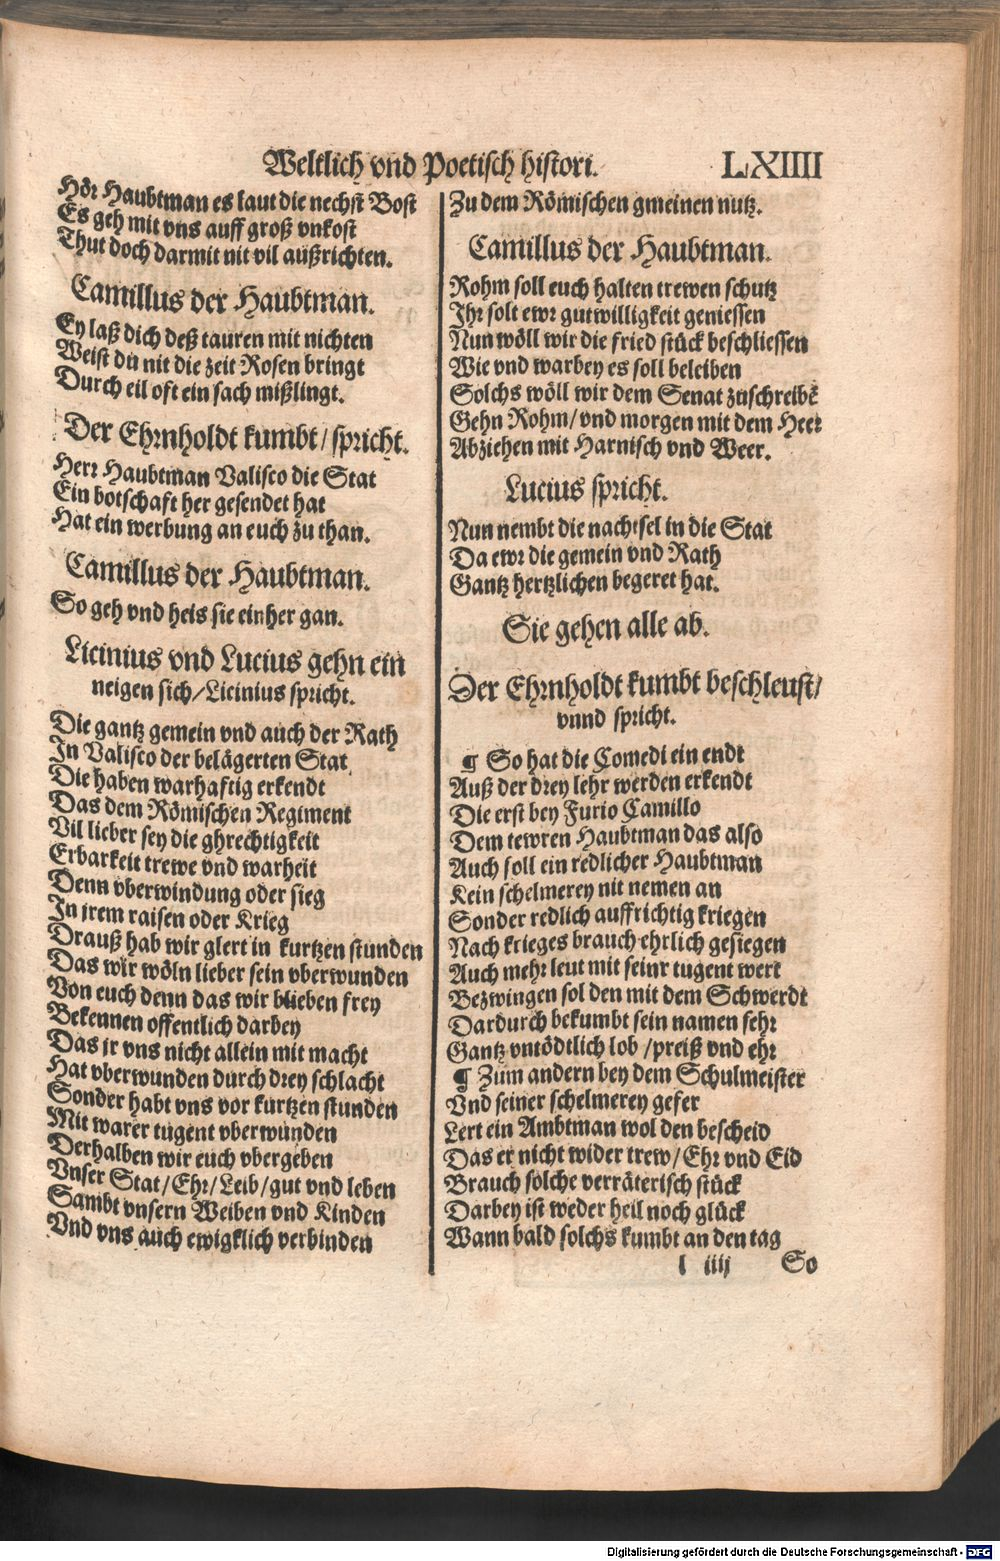 Weltlich vnd Poetisch histori. LXIIII
Hör Haubtman es laut die nechst Bost
Es geh mit vns auff groß vnkost
Thut doch darmit nit vil außrichten.
Camillus der Haubtman.
Ey laß dich deß tauren mit nichten
Weist du nit die zeit Rosen bringt
Durch eil oft ein sach mißlingt.
Der Ehrnholdt kumbt/spricht.
Herr Haubtman Valisco die Stat
Ein botschaft her gesendet hat
Hat ein werbung an euch zu than.
Camillus der Haubtman.
So geh vnd heis sie einher gan.
Licinius vnd Lucius gehn ein
neigen sich/Licinius spricht.
Die gantz gemein vnd auch der Rath
In Valisco der belägerten Stat
Die haben warhaftig erkendt
Das dem Römischen Regiment
Vil lieber sey die ghrechtigkeit
Erbarkeit trewe vnd warheit
Denn vberwindung oder sieg
In jrem raisen oder Krieg
Drauß hab wir glert in kurtzen stunden
Das wir wöln lieber sein vberwunden
Von euch denn das wir blieben frey
Bekennen offentlich darbey
Das jr vns nicht allein mit macht
Hat vberwunden durch drey schlacht
Sonder habt vns vor kurtzen stunden
Mit warer tugent vberwunden
Derhalben wir euch vbergeben
Vnser Stat/Ehr/Leib/gut vnd leben
Sambt vnsern Weiben vnd Kinden
Vnd vns auch ewigklich verbinden
Zu dem Römischen gmeinen nutz.
Camillus der Haubtman.
Rohm soll euch halten trewen schutz
Ihr solt ewr gutwilligkeit geniessen
Nun wöll wir die fried stück beschliessen
Wie vnd warbey es soll beleiben
Solchs wöll wir dem Senat zuschreibē
Gehn Rohm/vnd morgen mit dem Heer
Abziehen mit Harnisch vnd Weer.
Lucius spricht.
Nun nembt die nachtsel in die Stat
Da ewr die gemein vnd Rath
Gantz hertzlichen begeret hat.
Sie gehen alle ab.
Der Ehrnholdt kumbt beschleust/
vnnd spricht.
¶ So hat die Comedi ein endt
Auß der drey lehr werden erkendt
Die erst bey Furio Camillo
Dem tewren Haubtman das also
Auch soll ein redlicher Haubtman
Kein schelmerey nit nemen an
Sonder redlich auffrichtig kriegen
Nach krieges brauch ehrlich gesiegen
Auch mehr leut mit seinr tugent wert
Bezwingen sol den mit dem Schwerdt
Dardurch bekumbt sein namen sehr
Gantz vntödtlich lob/preiß vnd ehr
¶ Zum andern bey dem Schulmeister
Vnd seiner schelmerey gefer
Lert ein Ambtman wol den bescheid
Das er nicht wider trew/Ehr vnd Eid
Brauch solche verräterisch stück
Darbey ist weder heil noch glück
Wann bald solchs kumbt an den tag
l iiij So
Digitalisierung gefördert durch die Deutsche Forschungsgemeinschaft - DFG